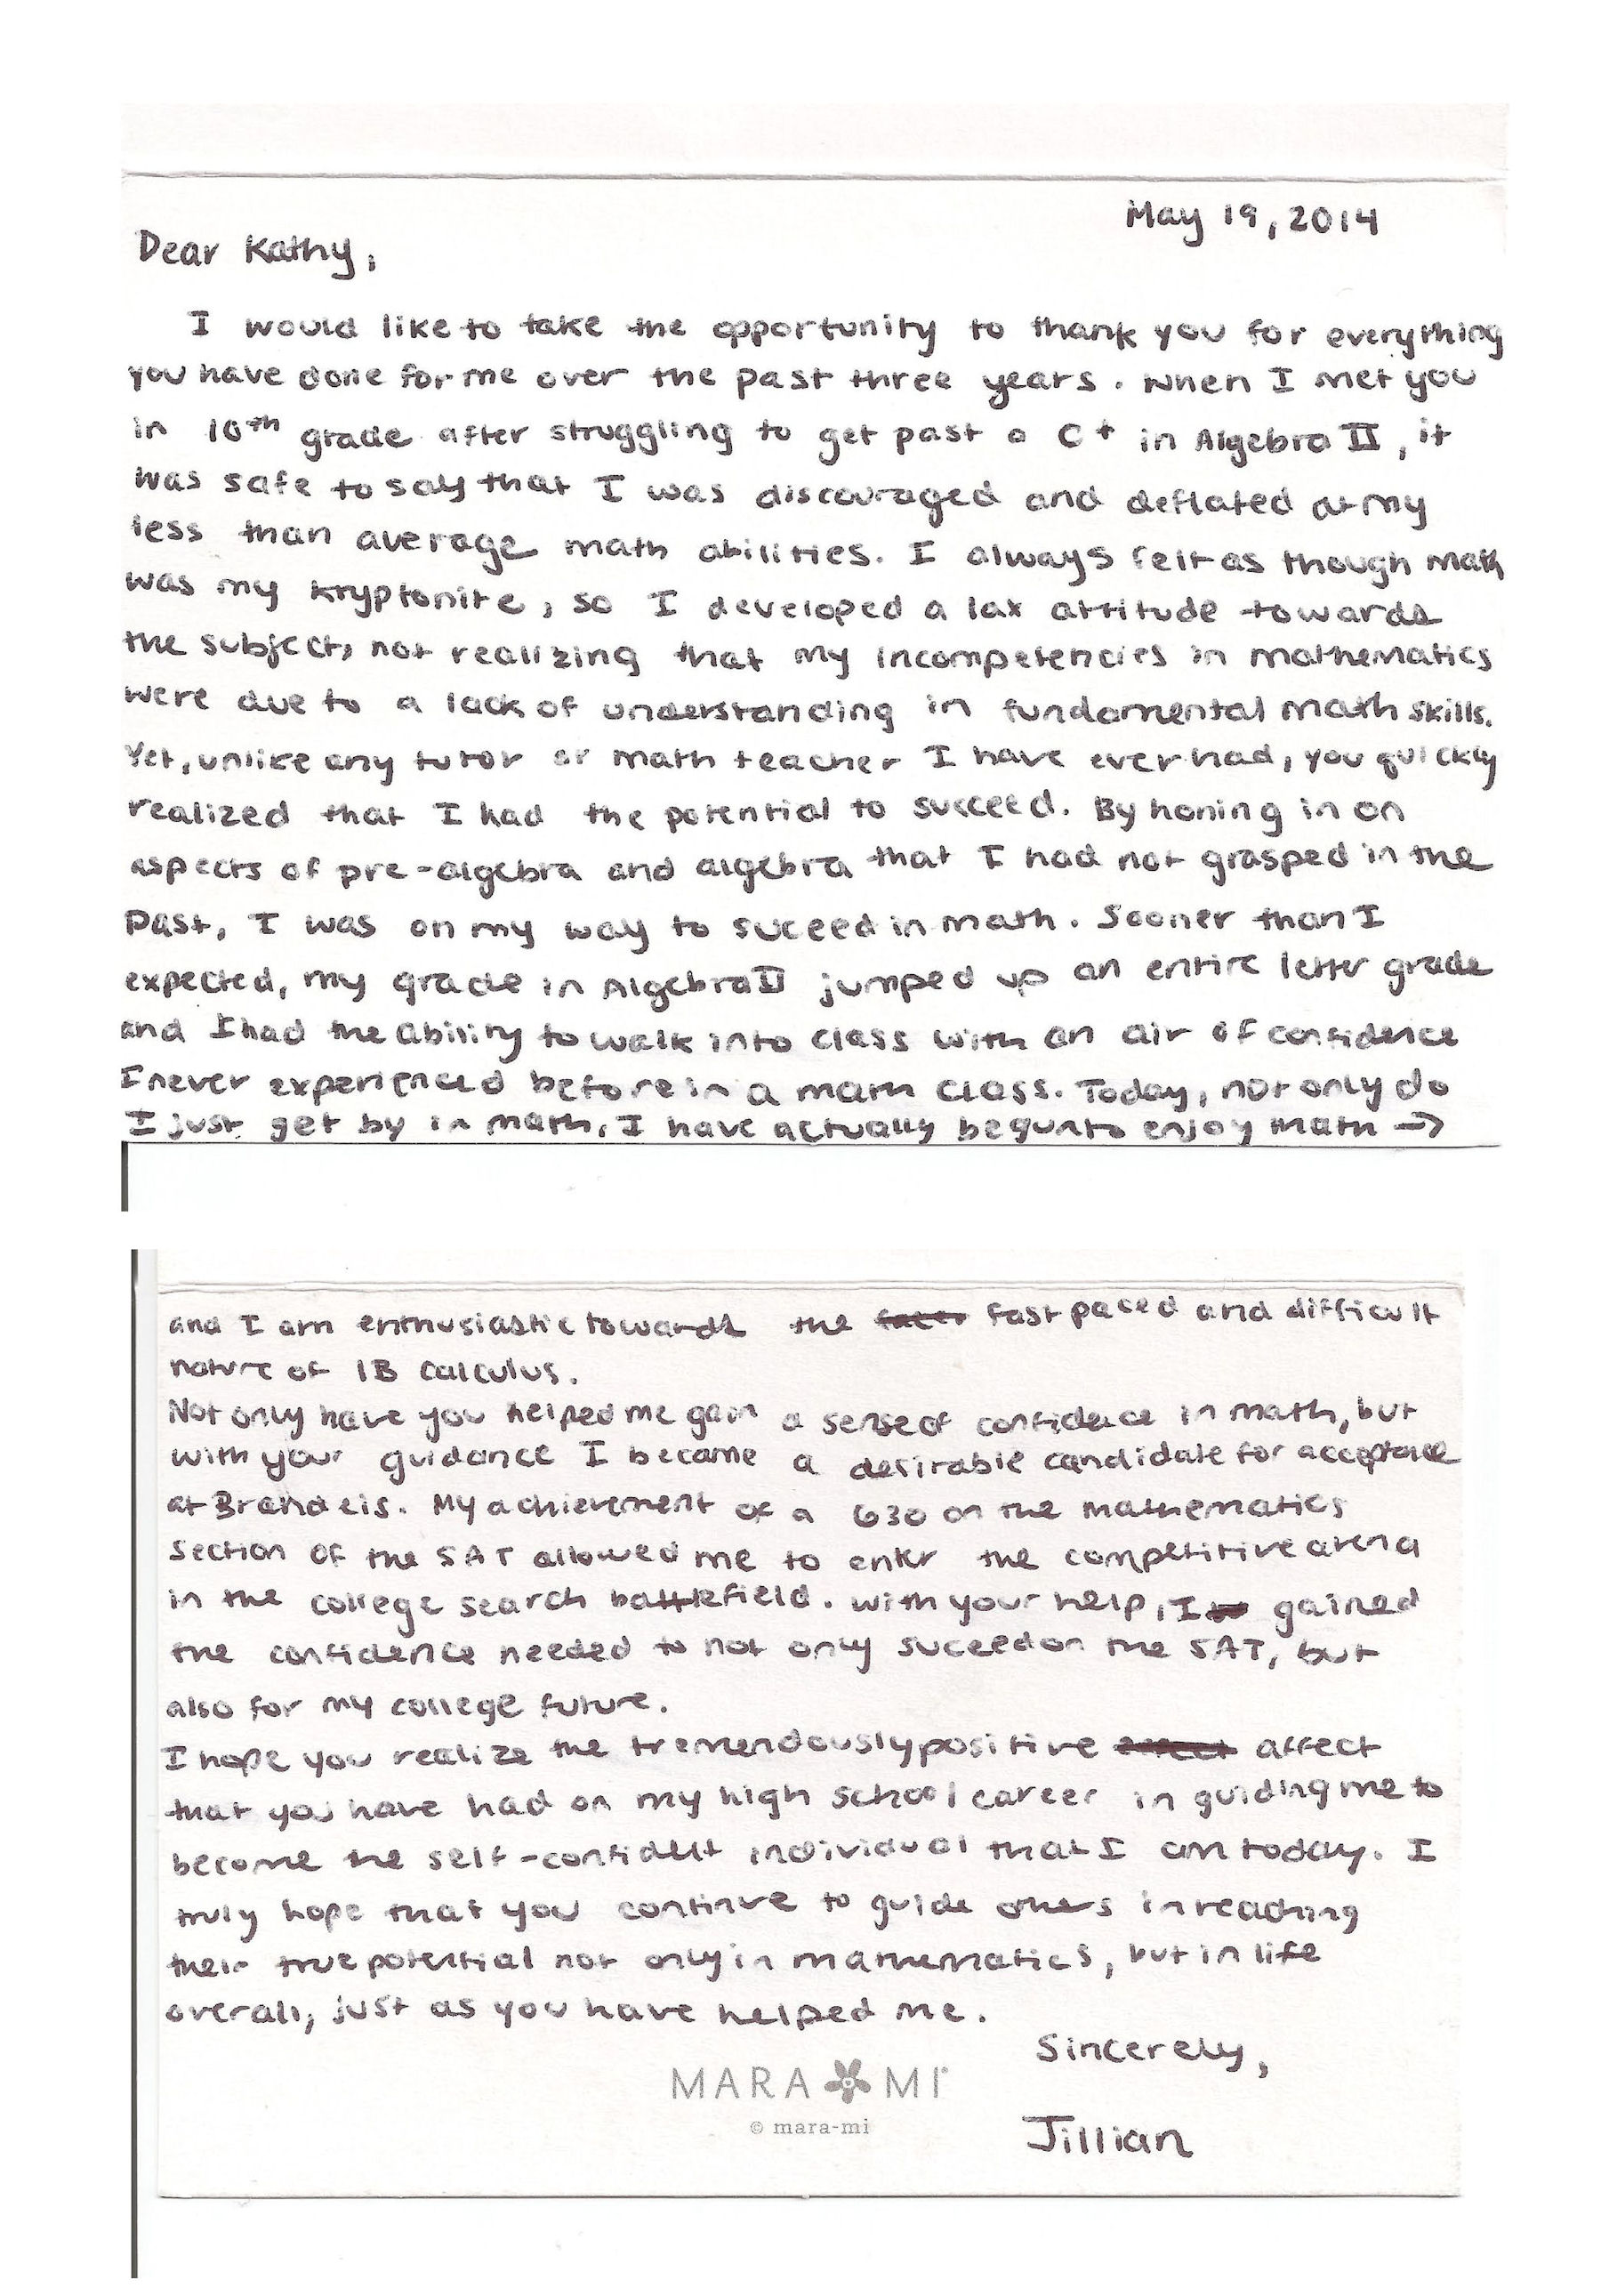 May 19, 2014
Dear Kathy,
I would like to take the opportunity to thank you for everything
you have done for me over the past three years. When I met you
in 10th grade after struggling to get past a C+ in Algebra II, it
was safe to say that I was discouraged and deflated at my
less than average math abilities. I always felt as though math
was my kryptonite, so I developed a lax attitude towards
the subject, not realizing that my incompetencies in mathematics
were due to a lack of understanding in fundamental math skills.
Yet, unlike any tutor or math teacher I have ever had, you quickly
realized that I had the potential to succeed. By honing in on
aspects of pre-algebra and algebra that I had not grasped in the
past, I was on my way to suceed in math. Sooner than I
expected, my grade in Algebra II jumped up an entire letter grade
and I had the ability to walk into class with an air of confidence
I never experienced before in a math class. Today, not only do
I just get by in math, I have actually begun to enjoy math →
and I am enthusiastic towards the fast paced and difficult
nature of IB Calculus.
Not only have you helped me gain a sense of confidence in math, but
with your guidance I became a desirable candidate for acceptance
at Brandeis. My achievement of a 630 on the mathematics
section of the SAT allowed me to enter the competitive arena
in the college search battlefield. With your help, I gained
the confidence needed to not only suceed on the SAT, but
also for my college future.
I hope you realize the tremendously positive affect
that you have had on my high school career in guiding me to
become the self-confident individual that I am today. I
truly hope that you continue to guide others in reaching
their true potential not only in mathematics, but in life
overall, just as you have helped me.
Sincerely,
MARA MI
© mara-mi
Jillian